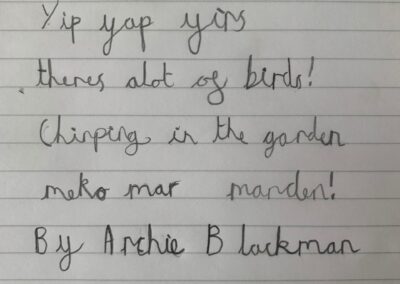 Yip yap yips
theres alot of birds!
Chirping in the garden
meko mar manden!
By Archie Blackman